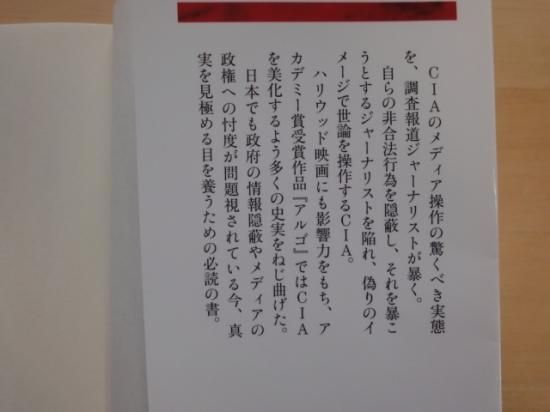 CIAのメディア操作の驚くべき実態
を、調査報道ジャーナリストが暴く。
自らの非合法行為を隠蔽し、それを暴こ
うとするジャーナリストを陥れ、偽りのイ
メージで世論を操作するCIA。
ハリウッド映画にも影響力をもち、ア
カデミー賞受賞作品『アルゴ』ではCIA
を美化するよう多くの史実をねじ曲げた。
日本でも政府の情報隠蔽やメディアの
政権への忖度が問題視されている今、真
実を見極める目を養うための必読の書。